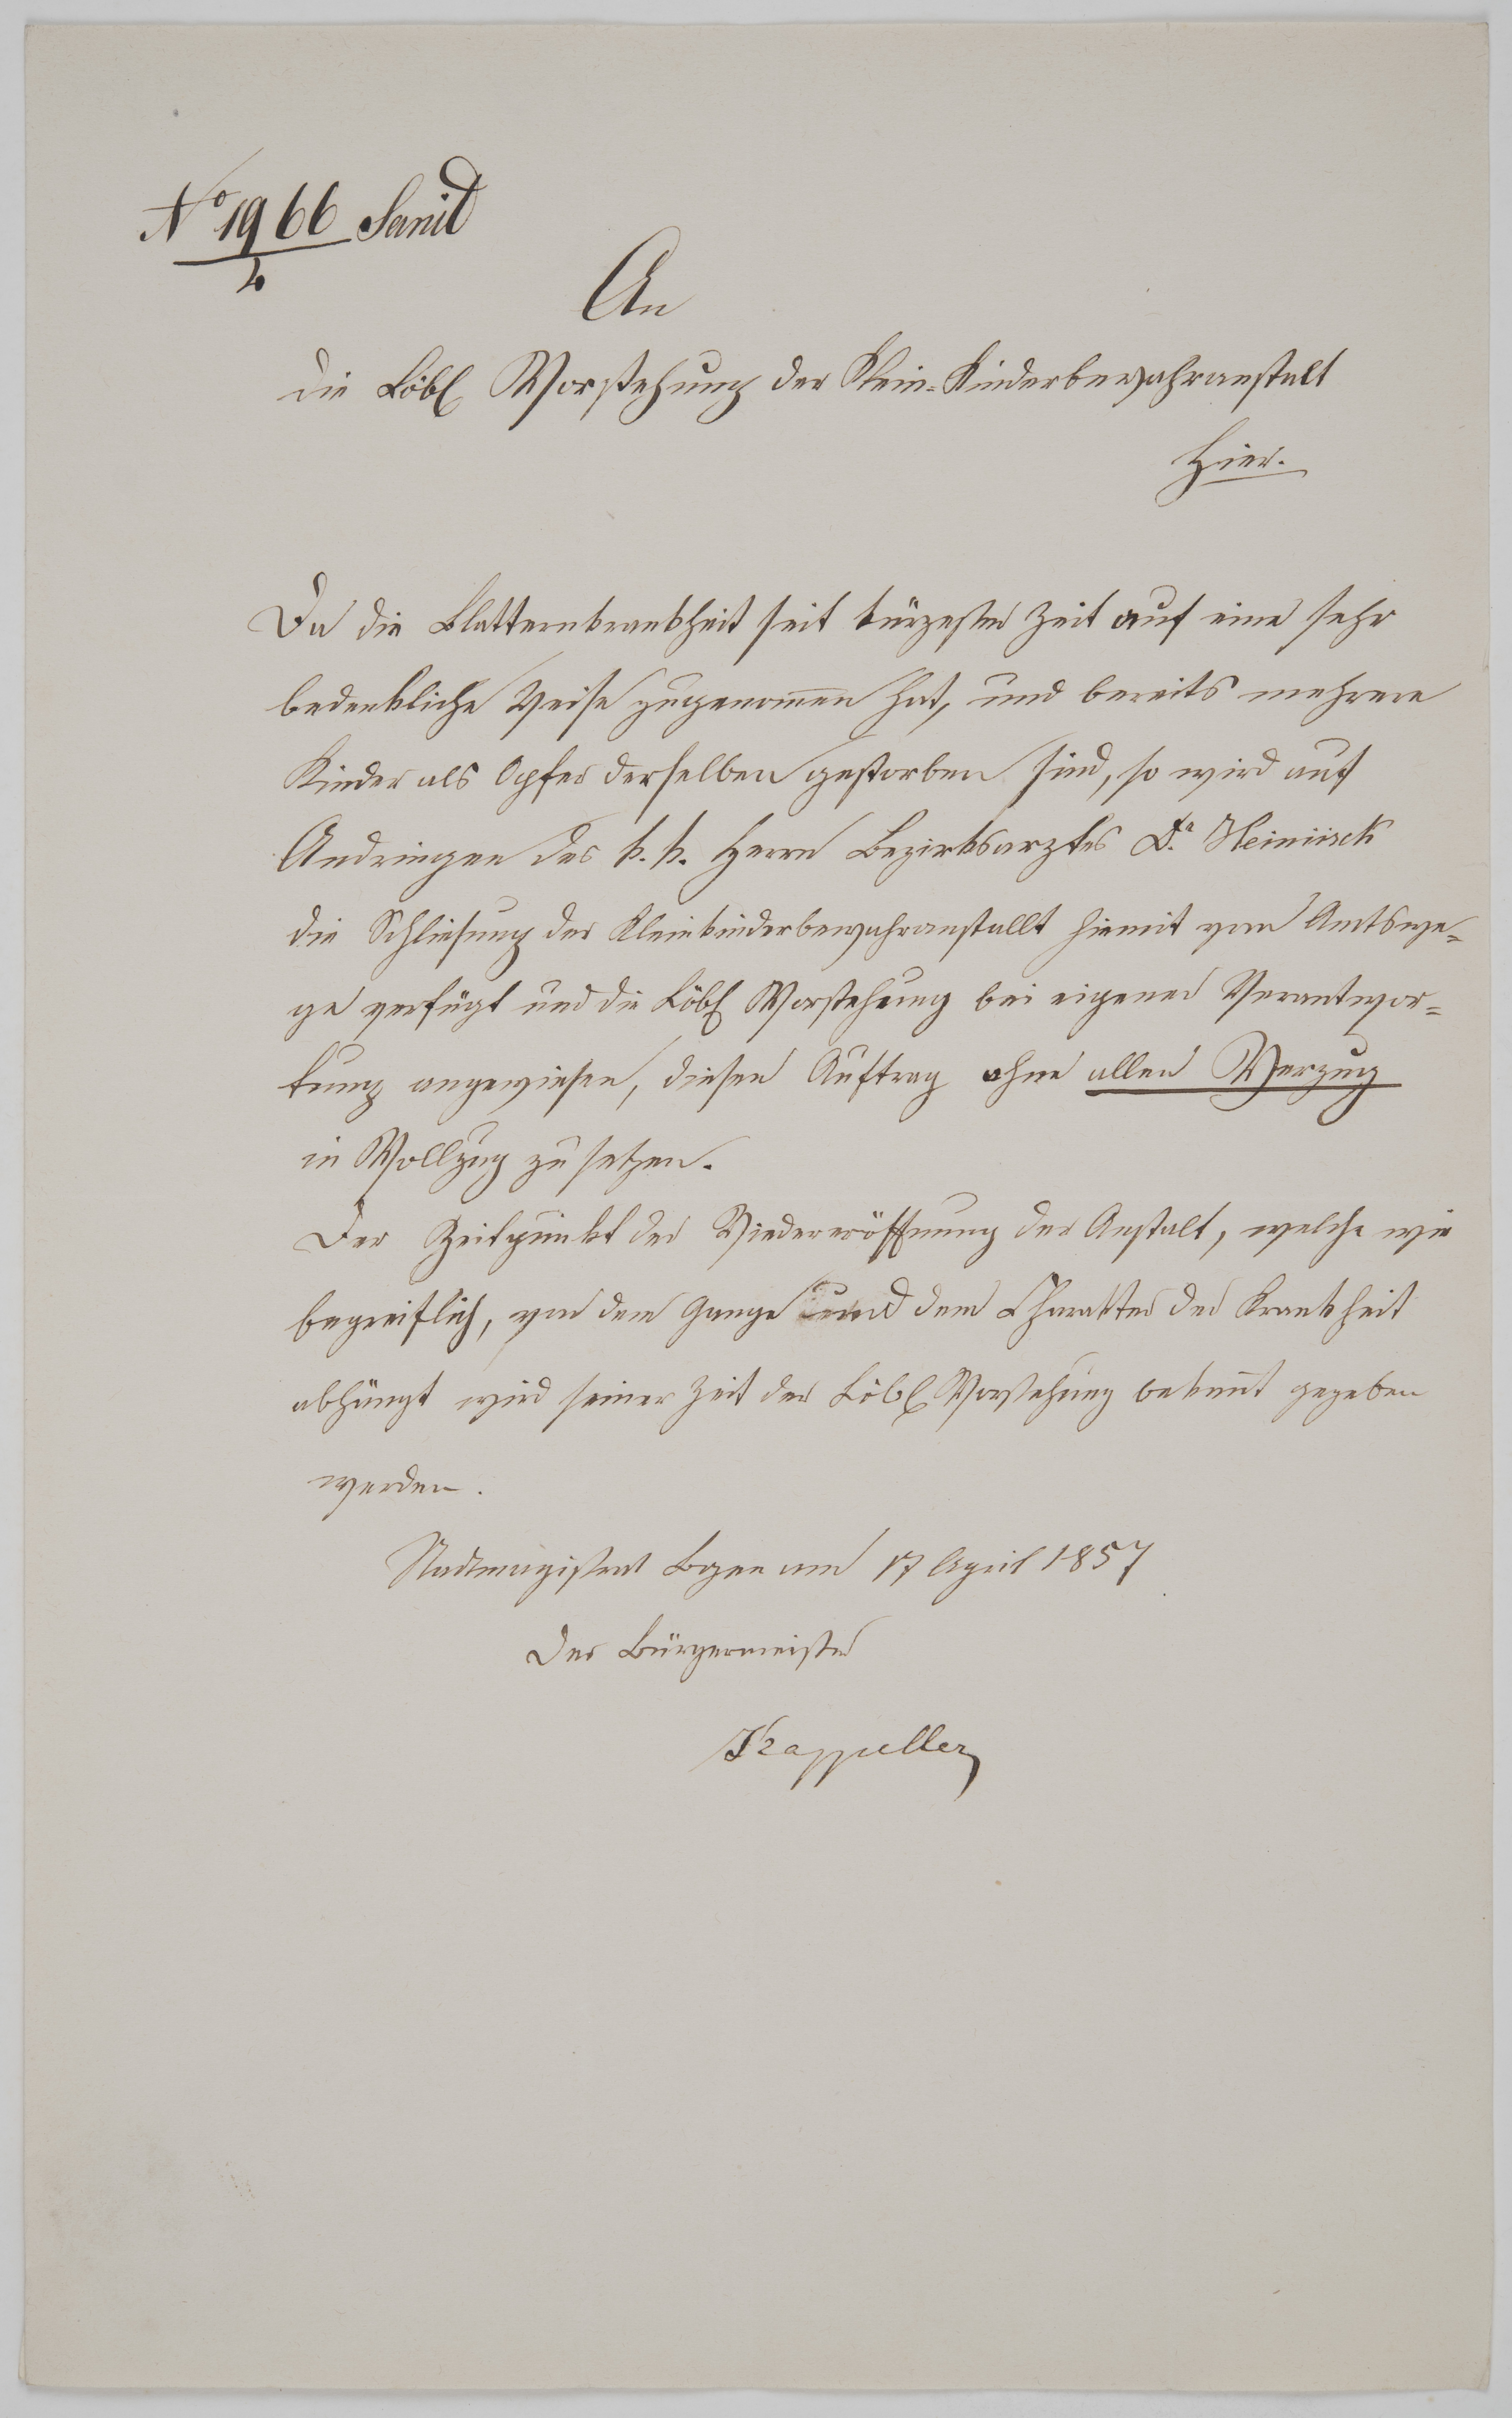 No 1966 Sanit
2
An
die Löbl Vorstehung der Klein-Kinderbewahranstalt
Hier.
Da die Blatternkrankheit seit kürzester Zeit auf eine sehr
bedenkliche Weise zugenom̄en hat, und bereits mehrere
Kinder als Opfer derselben gestorben sind, so wird auf
Andringen des k.k. Herrn Bezirksarztes Dr.
die Schließung der Kleinkinderbewahranstallt hiemit von Amtswe=
ge verfügt und die Löbl Vorstehung bei eigener Verantwor=
tung angewiesen, diesen Auftrag ohne allen Verzug
in Vollzug zu setzen.
Der Zeitpunkt der Wiedereröffnung der Anstalt, welche wie
begreiflich, von dem Gange und dem Charakter der Krankheit
abhängt wird seiner Zeit der Löbl Vorstehung bekan̄t gegeben
werden.
Stadtmagistrat Bozen am 17 April 1857
Der Bürgermeister
Kappeller